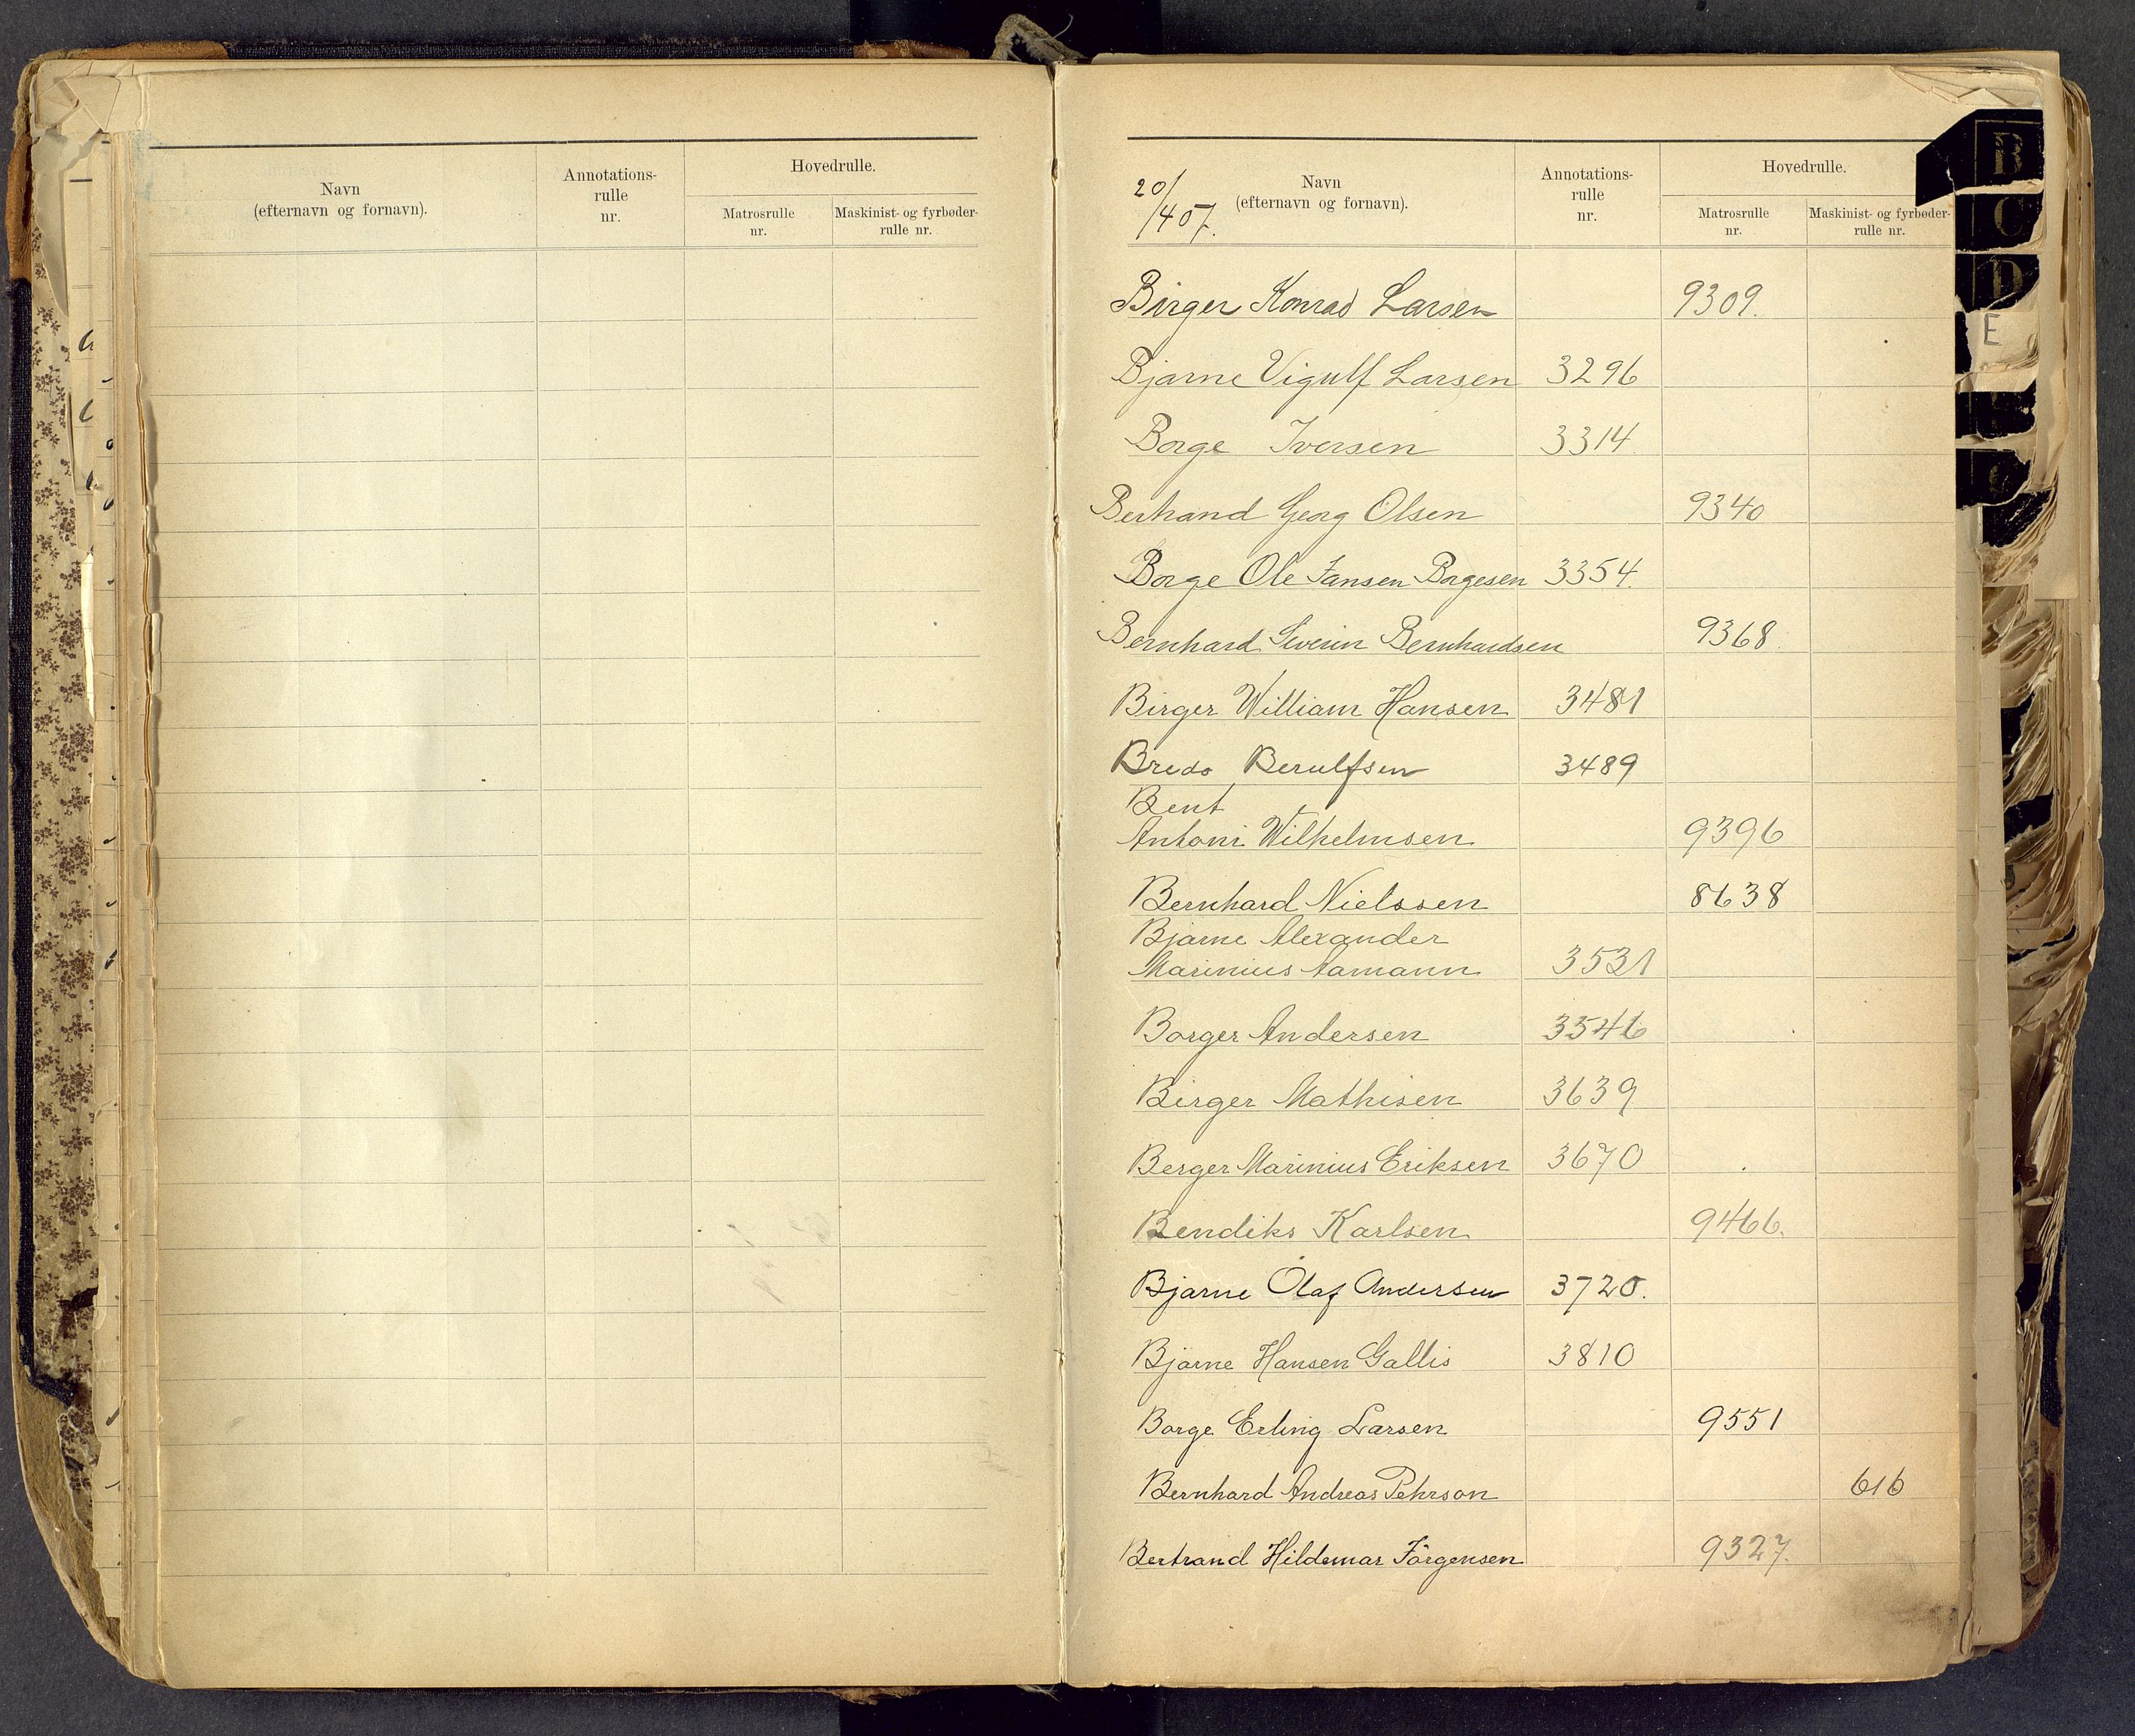 Navn
(efternavn og fornavn).
Annotations-
rulle
nr.
Hovedrulle.
Matrosrulle
nr.
Maskinist- og fyrbøder-
rulle nr.
20/4 07.
Navn
(efternavn og fornavn).
Annotations-
rulle
nr.
Hovedrulle.
Matrosrulle
nr.
Maskinist- og fyrbøder-
rulle nr.
Birger Konrad Larsen 9309.
Bjarne Vigulf Larsen 3296
Borge Iversen 3314
Berhand Georg Olsen 9340
Borge Ole Jansen Borgesen 3354.
Bernhard Severin Bernhardsen 9368
Birger William Hansen 3481
Bredo Berulfsen 3489
Bent
Antoni Wilhelmsen 9396
Bernhard Nielssen 8638
Bjarne Alexander
Marinius Aamann 3531
Borger Andersen 3546
Birger Mathisen 3639
Berger Marinius Eriksen 3670
Bendiks Karlsen 9466.
Bjarne Olaf Andersen 3720.
Bjarne Hansen Gallis 3810
Borge Erling Larsen 9551
Bernhard Andreas Pehrson 616
Bertrand Hildemar Jörgensen 9327.
B
C
D
E
G